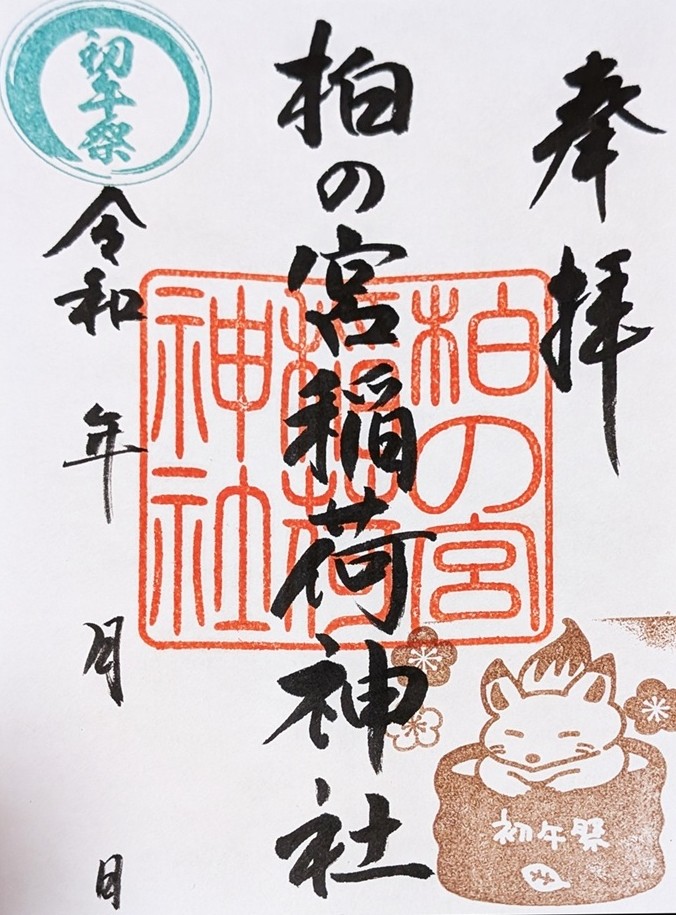 奉拝
柏の宮稲荷神社
柏の宮
稲荷
神社
初午祭
令和 年 月 日
初午祭